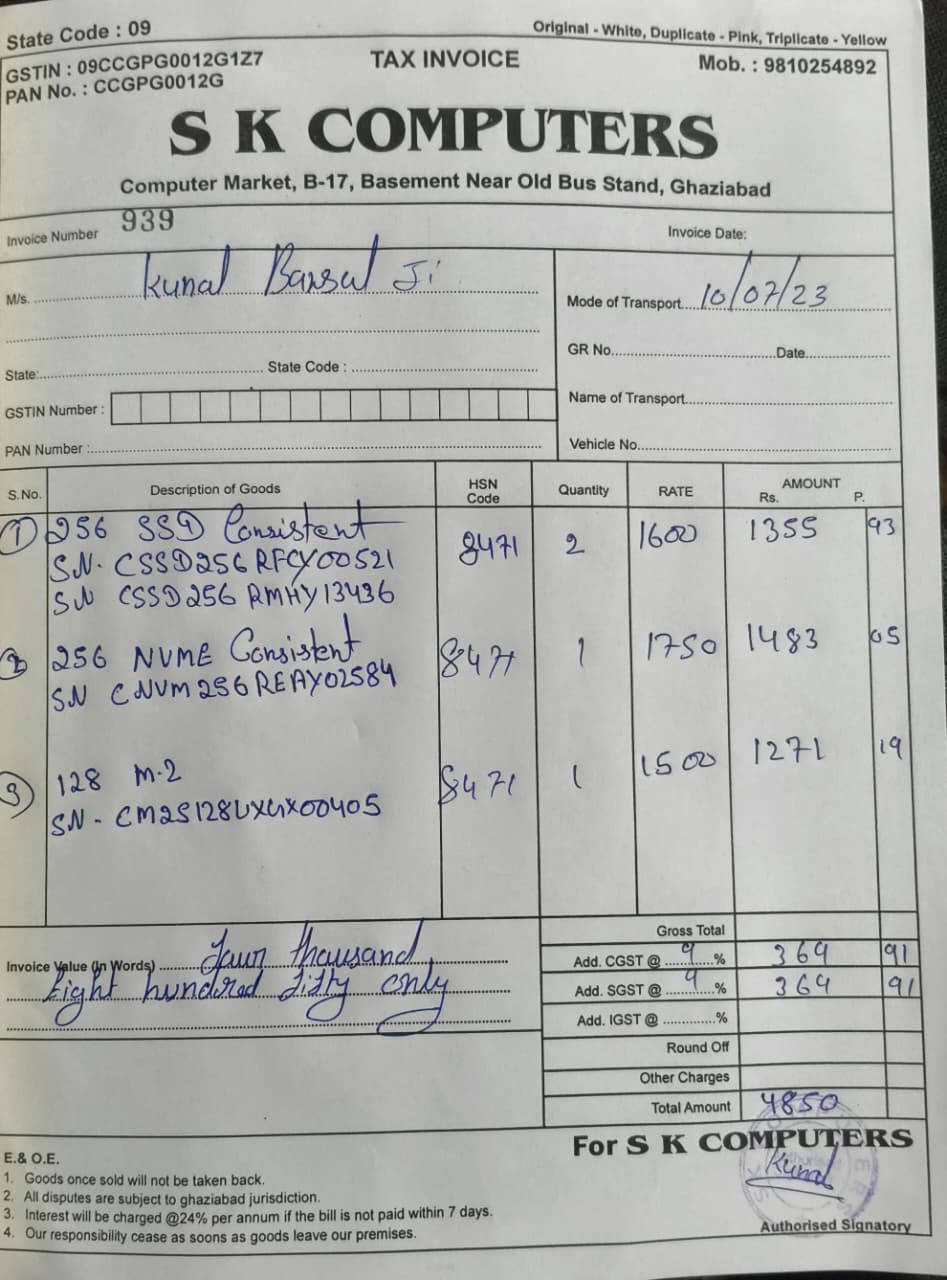 State Code : 09
Original - White, Duplicate - Pink, Triplicate - Yellow
GSTIN : 09CCGPG0012G1Z7 TAX INVOICE Mob. : 9810254892
PAN No. : CCGPG0012G
S K COMPUTERS
Computer Market, B-17, Basement Near Old Bus Stand, Ghaziabad
Invoice Number 939 Invoice Date:
M/s. Kunal Bansal Ji
Mode of Transport 10/07/23
GR No. Date
State: State Code :
GSTIN Number : Name of Transport
PAN Number : Vehicle No.
S.No. Description of Goods HSN Code Quantity RATE AMOUNT Rs. P.
1 256 SSD Consistent 8471 2 1600 1355 93
SN. CSSD256RFCY00521
SN CSSD256RMHY13436
2 256 NVME Consistent 8471 1 1750 1483 05
SN CNVM256REAY02584
3 128 M.2 8471 1 1500 1271 19
SN - CM2S128UXGX00405
Gross Total
Invoice Value (In Words) Four thousand
Eight hundred fifty only
Add. CGST @ 9 % 369 91
Add. SGST @ 9 % 369 91
Add. IGST @ %
Round Off
Other Charges
Total Amount 4850
For S K COMPUTERS
Kunal
Authorised Signatory
E.& O.E.
1. Goods once sold will not be taken back.
2. All disputes are subject to ghaziabad jurisdiction.
3. Interest will be charged @24% per annum if the bill is not paid within 7 days.
4. Our responsibility cease as soon as goods leave our premises.